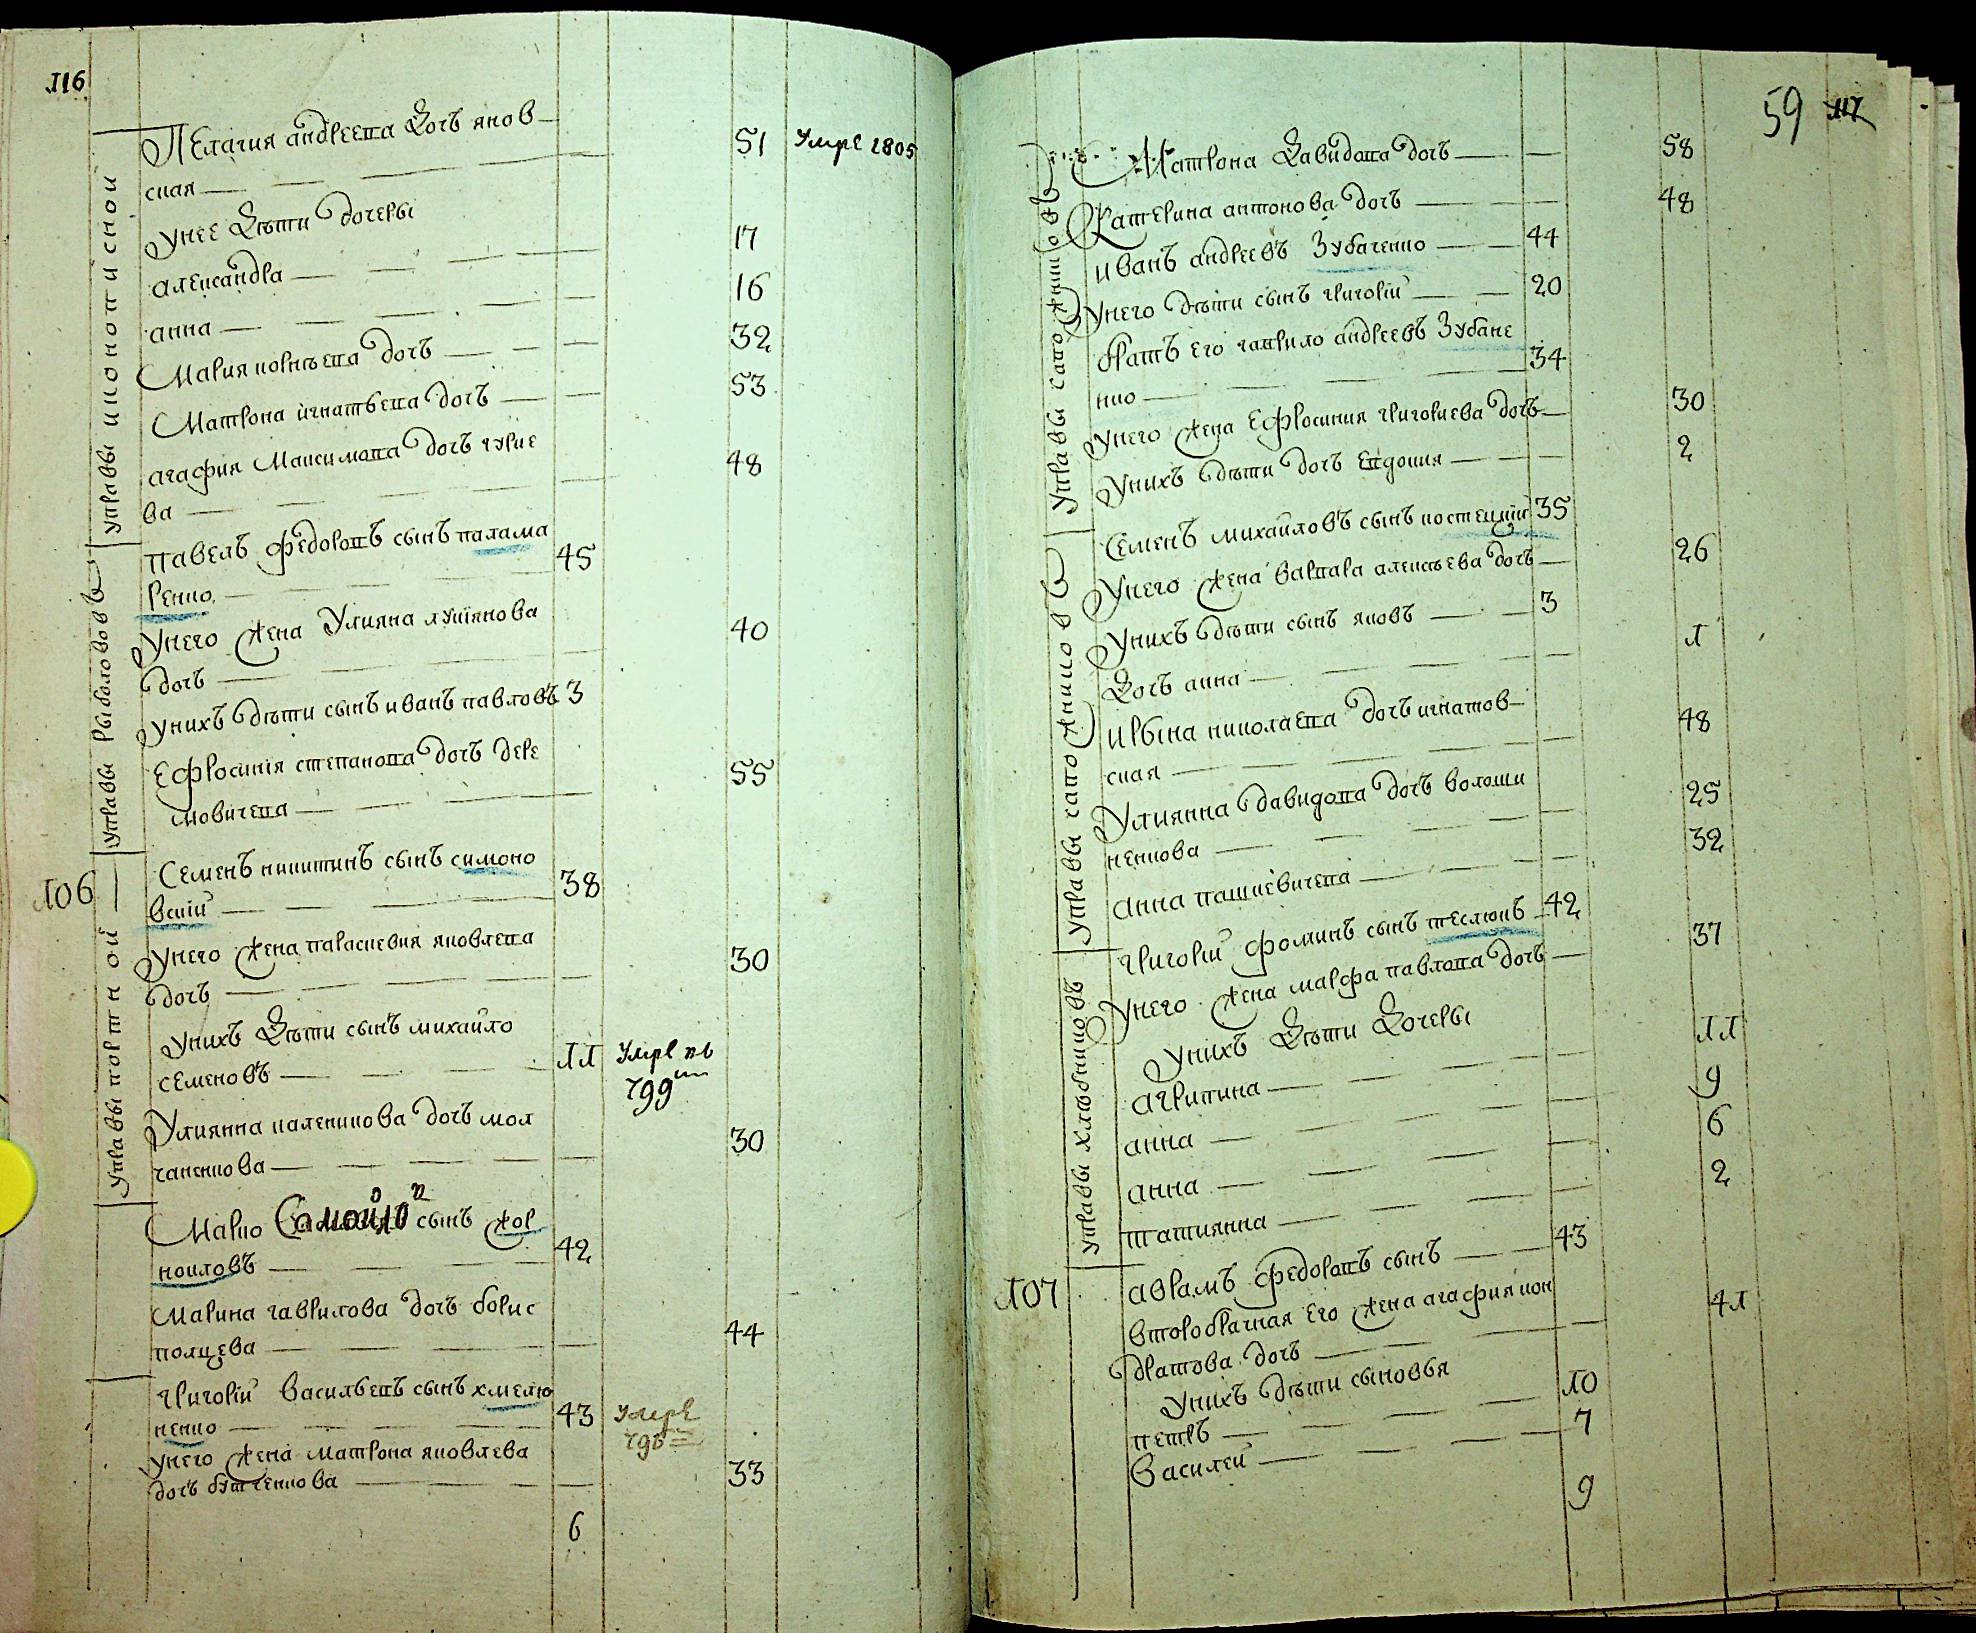 116
управы иконописной
Пелагия андреева Дочь яков
ская
51
умре 1805
у нее Дети дочеры
александра
17
анна
16
Мария корнѣева дочь
32
Матрона игнатьева дочь
53
агафия Максимова дочь гурие
ва
48
управы рыболововъ
павелъ федоровъ сынъ палама
ренко
45
у него жена Улияна лукіянова
дочь
40
у нихъ дѣти сынъ иванъ павловъ
3
Ефросинія степанова дочь дере
мовичева
55
106
управы портной
Семенъ никитинъ сынъ симоно
вский
38
у него жена парасцевия яковлева
дочь
30
у нихъ Дѣти сынъ михайло
семеновъ
11
умре въ
799
Улиянна каленикова дочь мол
чаненкова
30
Марко Самойловъ сынъ жор
ноиловъ
42
Марина гаврилова дочь борис
полцева
44
григорій васильевъ сынъ хмелю
ненко
43
умре
795
у него жена матрона яковлева
дочь бутченкова
33
6
59
117
управы сапожниковъ
Матрона Давидова дочь
58
Катерина антонова дочь
48
иванъ андреевъ Зубаченко
44
у него дѣти сынъ григорій
20
братъ его гаврило андреевъ Зубаче
нко
34
у него жена Ефросиния григориева дочь
30
у нихъ дѣти дочь Евдокия
2
управы сапожниковъ
Семенъ михайловъ сынъ костецкий
35
у него жена варвара алексѣева дочь
26
у нихъ дѣти сынъ яковъ
3
Дочь анна
1
ирына николаева дочь игнатов
ская
48
Улиянна давидова дочь волоши
ненкова
25
анна пашкевичева
32
управы хлѣбниковъ
григорій фоминъ сынъ теслюкъ
42
у него жена марфа павлова дочь
37
у нихъ Дѣти Дочеры
агрипина
11
анна
9
анна
6
татиянна
2
107
аврамъ федоровъ сынъ
43
второбрачная его жена агафия кон
дратова дочь
41
у нихъ дѣти сыновья
петръ
10
василей
7
9